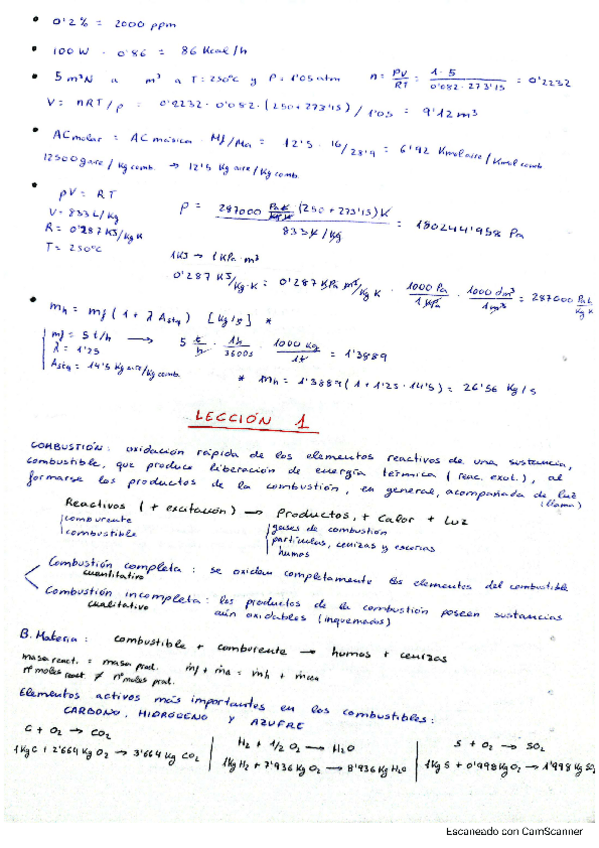 • 0'2% = 2000 ppm
• 100 W · 0'86 = 86 Kcal/h
• 5 m³N a m³ a T = 250ºC y P = 1'05 atm n = PV/RT = 1·5/0'082·273'15 = 0'2232
V = nRT/p = 0'2232·0'082·(250+273'15)/1'05 = 9'12 m³
• ACmolar = ACmásica · Mf/Ma = 12'5 · 16/28'9 = 6'92 Kmolaire/Kmol comb
12500 gaire/Kgcomb. → 12'5 Kg aire/Kgcomb.
•
pV = RT
V = 833 L/Kg
R = 0'287 KJ/KgK
T = 250ºC
P = 287000 Pa·L/Kg·K (250 + 273'15) K / 833 L/Kg = 180244'958 Pa
1KJ → 1 KPa·m³
0'287 KJ/Kg·K = 0'287 KPa m³/Kg K · 1000 Pa/1 KPa · 1000 dm³/1 m³ = 287000 Pa L/Kg K
• ṁh = ṁf (1 + λ Astq) [Kg/s] *
ṁf = 5 t/h → 5 t/h · 1h/3600s · 1000 Kg/1t = 1'3889
λ = 1'25
Astq = 14'5 Kg aire/Kg comb.
* ṁh = 1'3889 (1 + 1'25 · 14'5) = 26'56 Kg/s
LECCIÓN 1
COMBUSTIÓN: oxidación rápida de los elementos reactivos de una sustancia,
combustible, que produce liberación de energía térmica (reac. exot.), al
formarse los productos de la combustión, en general, acompañada de luz
(llama)
Reactivos (+ excitación) → Productos, + Calor + Luz
comburente
combustible
gases de combustión
partículas, cenizas y escorias
humos
Combustión completa: se oxidan completamente los elementos del combustible
cuantitativo
Combustión incompleta: los productos de la combustión poseen sustancias
cualitativo aún oxidables (inquemados)
B. Materia: combustible + comburente → humos + cenizas
masa react. = masa prod. ṁf + ṁa = ṁh + ṁcen
nº moles react. ≠ nº moles prod.
Elementos activos más importantes en los combustibles:
CARBONO, HIDRÓGENO y AZUFRE
C + O₂ → CO₂
1Kg C + 2'664 Kg O₂ → 3'664 Kg CO₂
H₂ + 1/2 O₂ → H₂O
1Kg H₂ + 7'936 Kg O₂ → 8'936 Kg H₂O
S + O₂ → SO₂
1Kg S + 0'998 Kg O₂ → 1'998 Kg SO₂
Escaneado con CamScanner